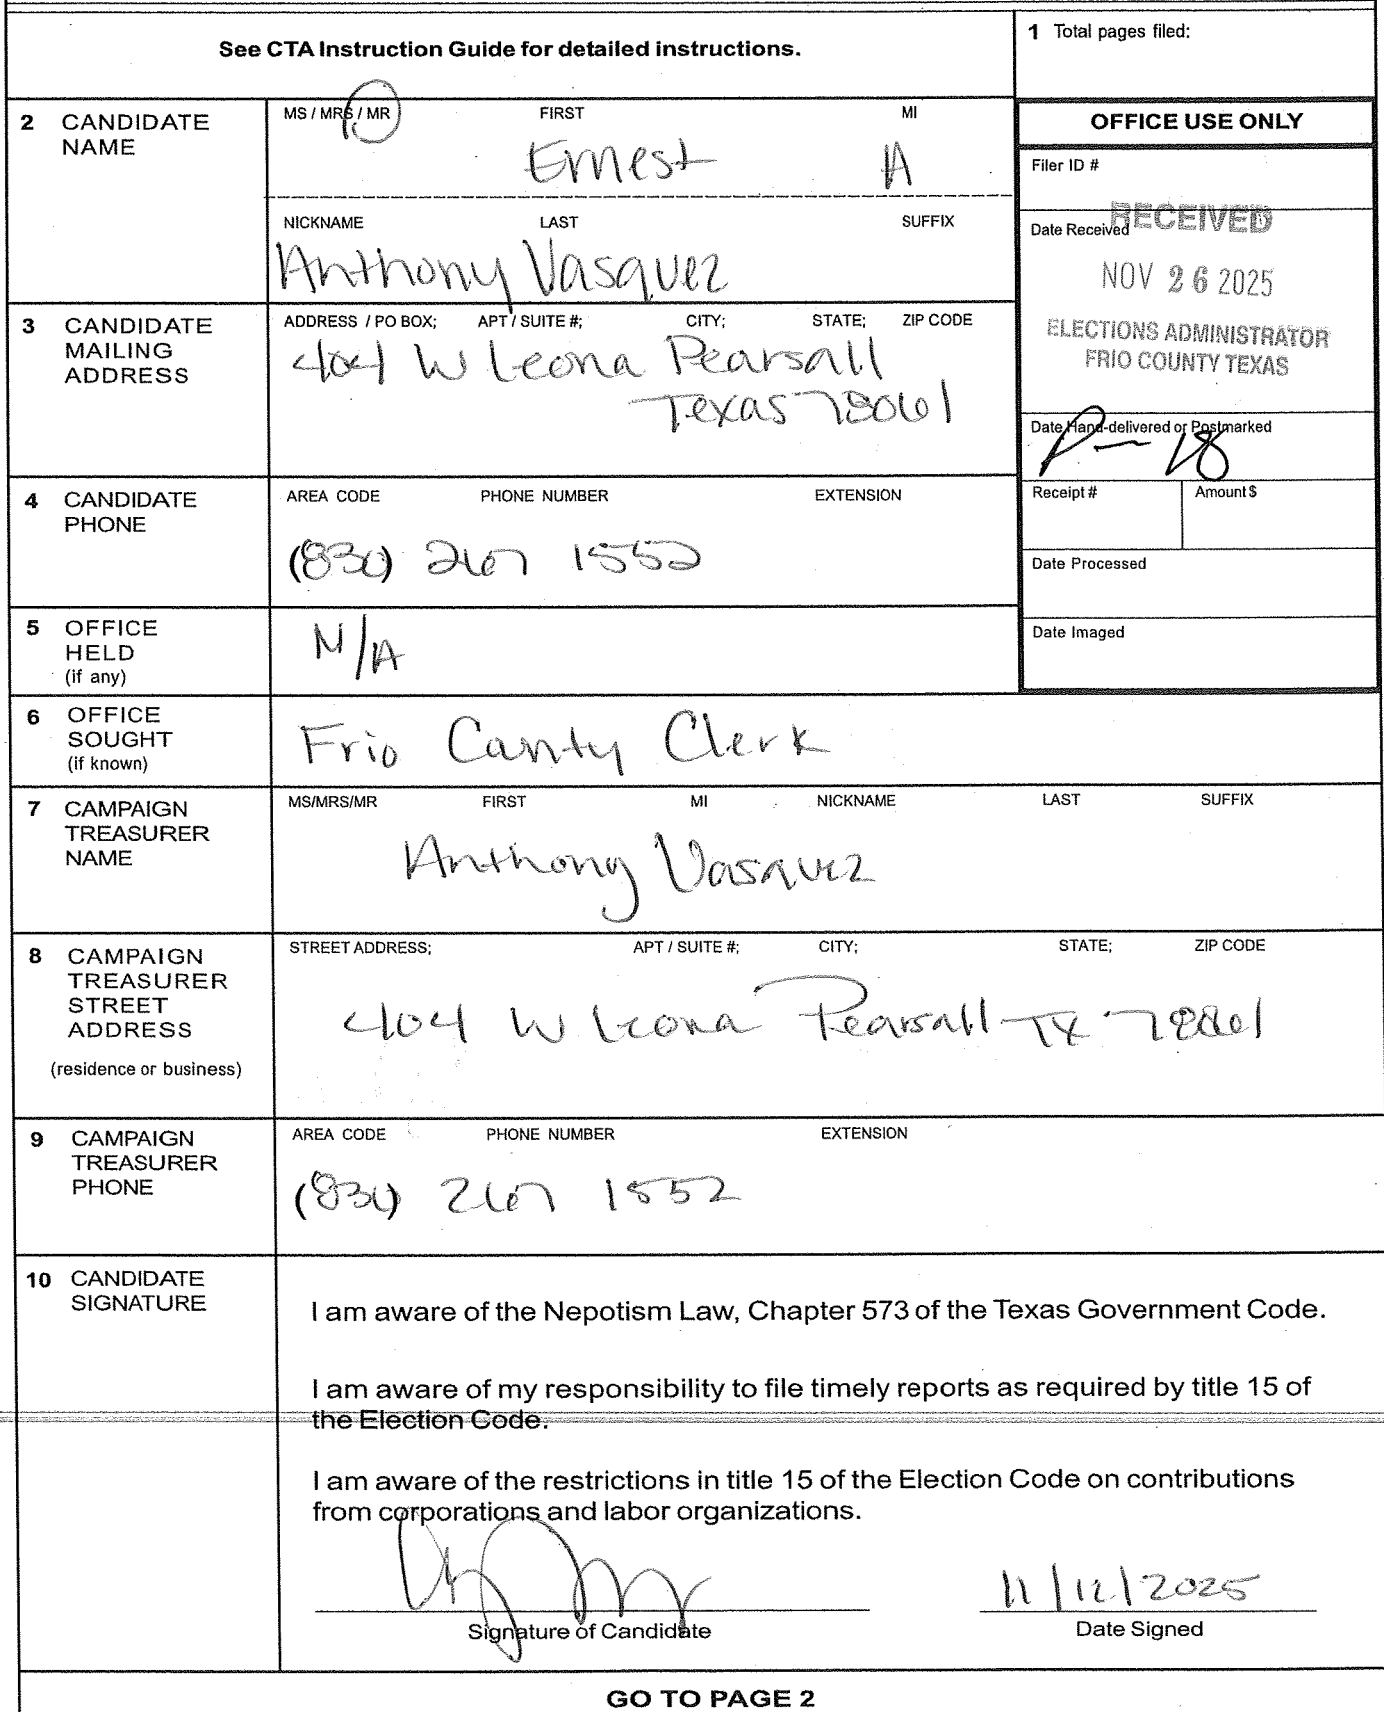 See CTA Instruction Guide for detailed instructions.
1 Total pages filed:
2 CANDIDATE NAME
MS / MRS / MR FIRST MI
Ernest A
NICKNAME LAST SUFFIX
Anthony Vasquez
OFFICE USE ONLY
Filer ID #
Date Received
RECEIVED
NOV 26 2025
ELECTIONS ADMINISTRATOR
FRIO COUNTY TEXAS
Date Hand-delivered or Postmarked
Receipt # Amount $
Date Processed
Date Imaged
3 CANDIDATE MAILING ADDRESS
ADDRESS / PO BOX; APT / SUITE #; CITY; STATE; ZIP CODE
404 W Leona Pearsall
Texas 78061
4 CANDIDATE PHONE
AREA CODE PHONE NUMBER EXTENSION
(830) 267 1552
5 OFFICE HELD (if any)
N/A
6 OFFICE SOUGHT (if known)
Frio County Clerk
7 CAMPAIGN TREASURER NAME
MS/MRS/MR FIRST MI NICKNAME LAST SUFFIX
Anthony Vasquez
8 CAMPAIGN TREASURER STREET ADDRESS (residence or business)
STREET ADDRESS; APT / SUITE #; CITY; STATE; ZIP CODE
404 W Leona Pearsall TX 78061
9 CAMPAIGN TREASURER PHONE
AREA CODE PHONE NUMBER EXTENSION
(830) 267 1552
10 CANDIDATE SIGNATURE
I am aware of the Nepotism Law, Chapter 573 of the Texas Government Code.
I am aware of my responsibility to file timely reports as required by title 15 of
the Election Code.
I am aware of the restrictions in title 15 of the Election Code on contributions
from corporations and labor organizations.
11/12/2025
Signature of Candidate Date Signed
GO TO PAGE 2